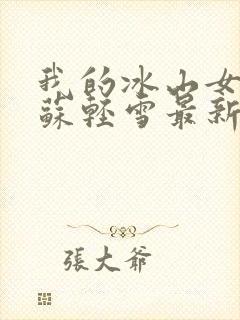 我的冰山女
蘇輕雪最新
張大爺